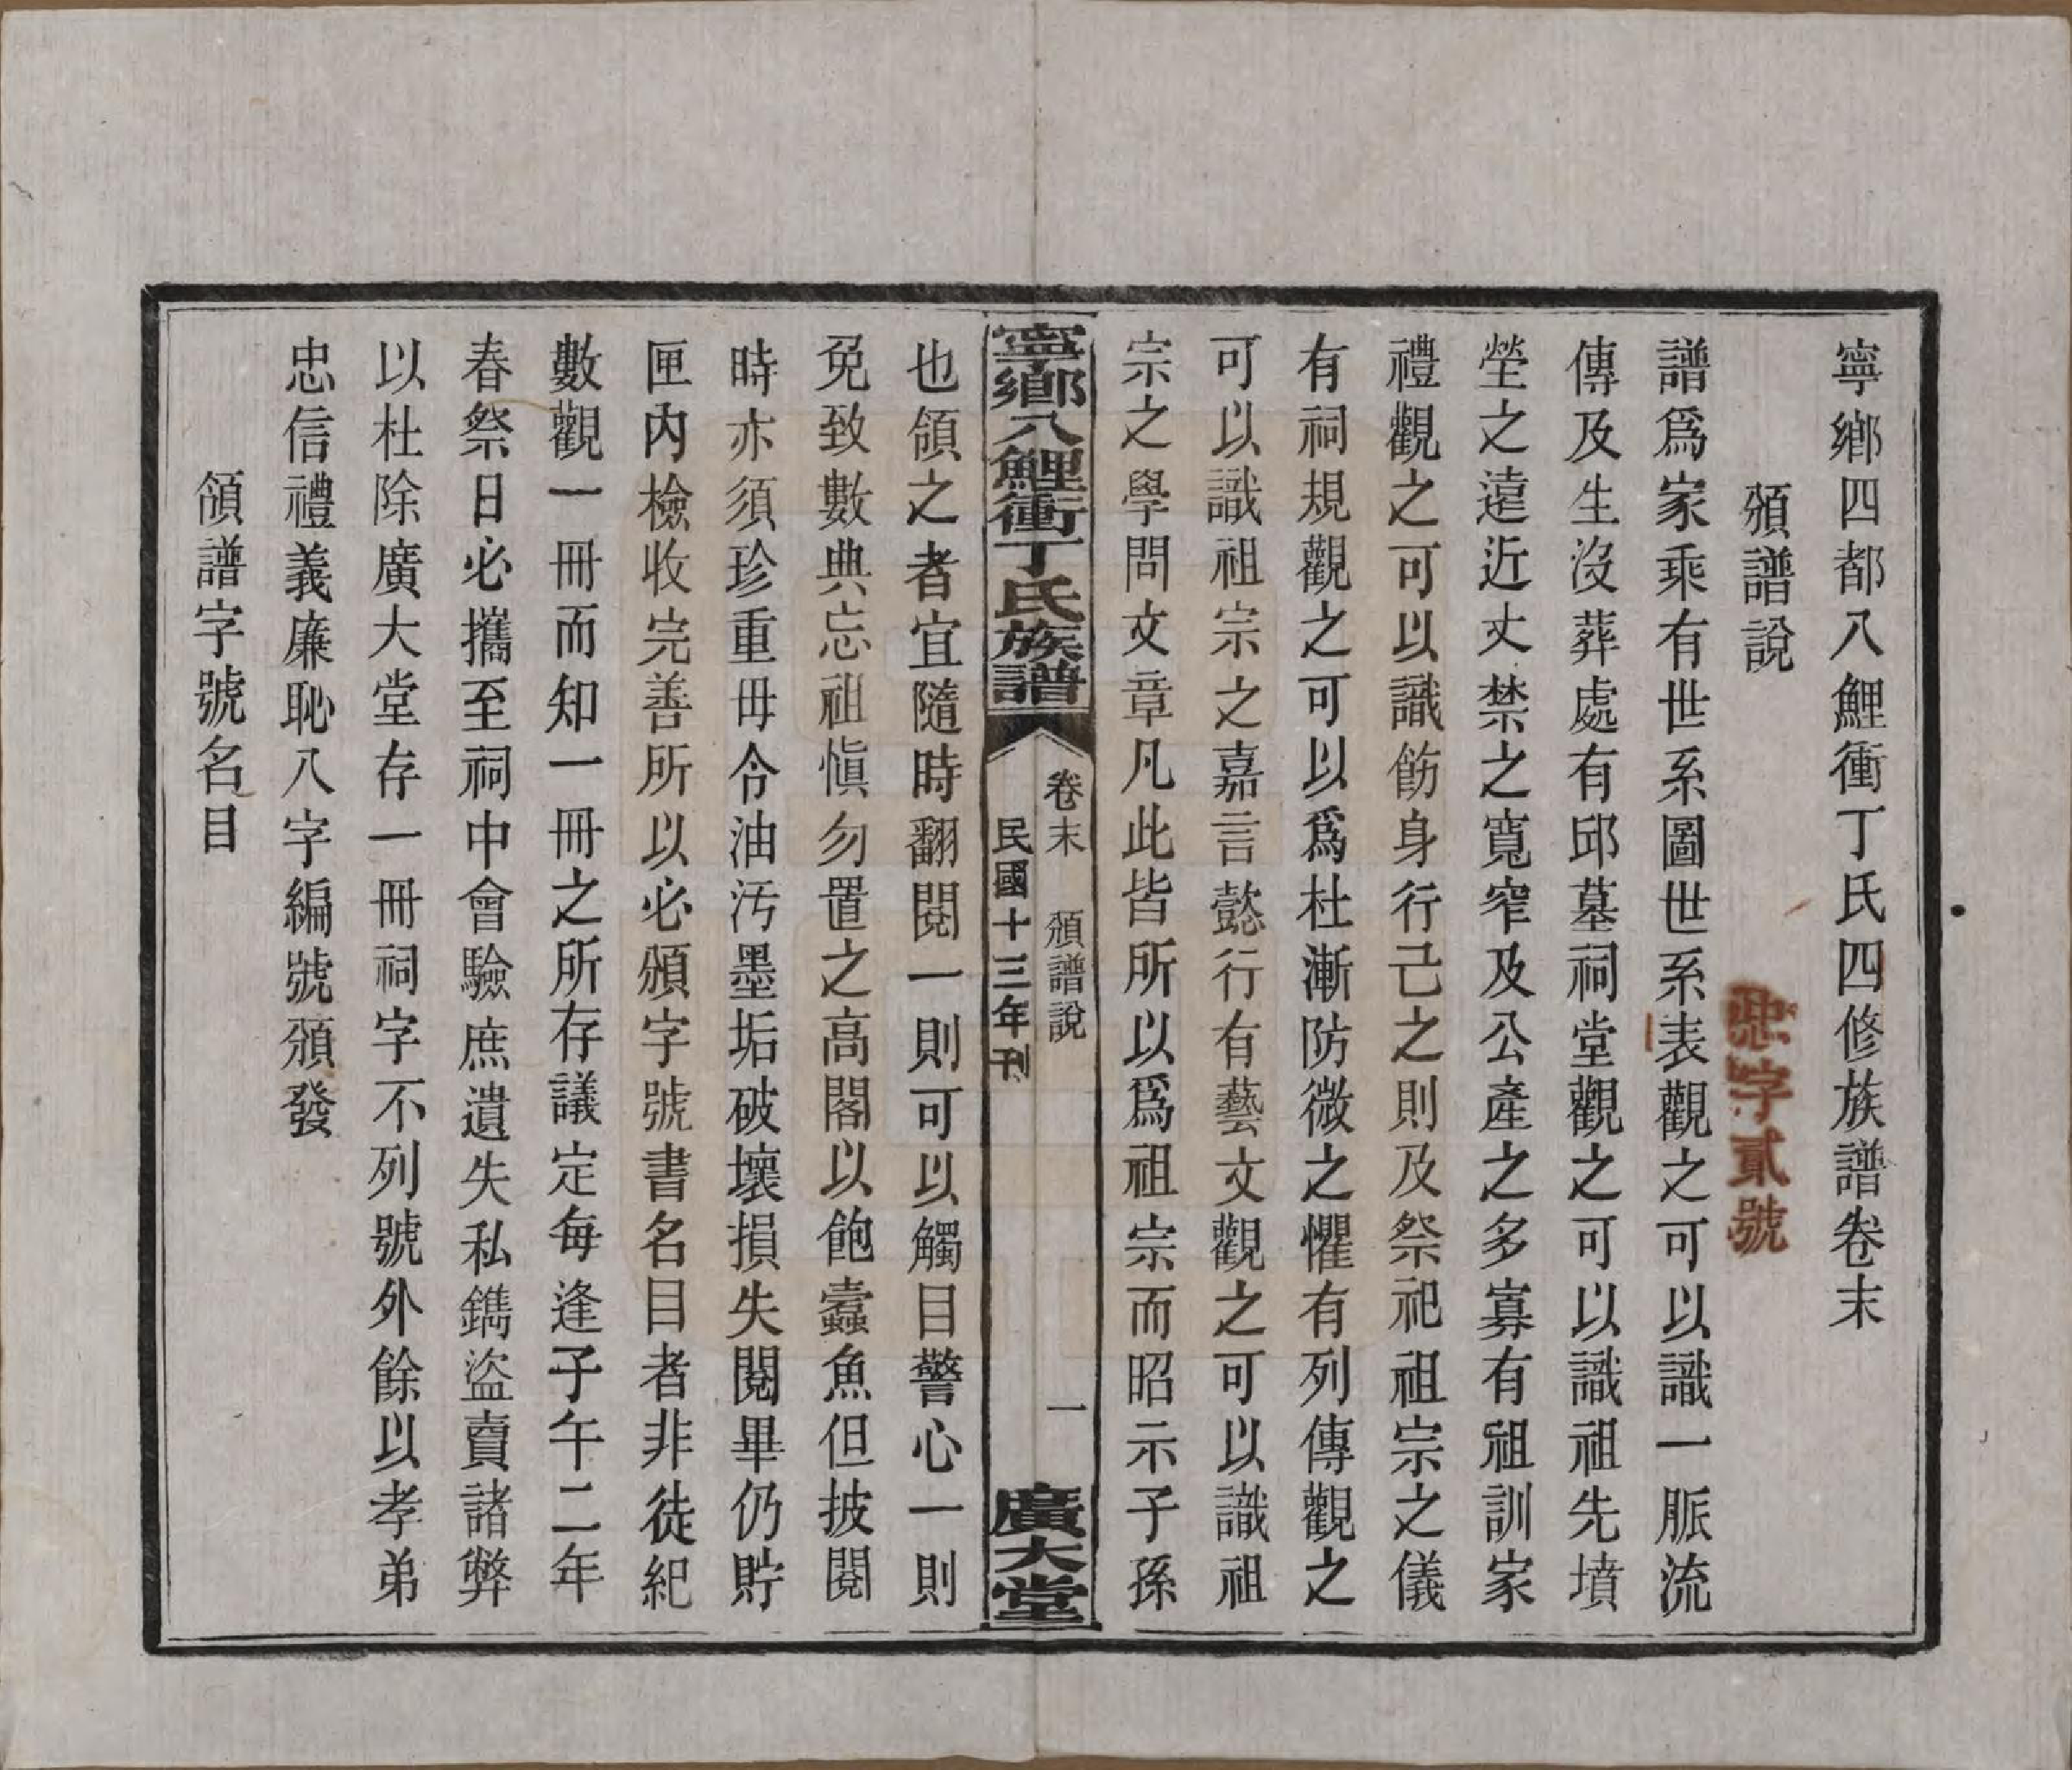 寧鄉四都八鯉衝丁氏四修族譜卷末
頒譜說
忠字貳號
譜爲家乘有世系圖世系表觀之可以識一脈流
傳及生沒葬處有邱墓祠堂觀之可以識祖先墳
塋之遠近丈禁之寬窄及公產之多寡有祖訓家
禮觀之可以識飭身行己之則及祭祀祖宗之儀
有祠規觀之可以爲杜漸防微之懼有列傳觀之
可以識祖宗之嘉言懿行有藝文觀之可以識祖
宗之學問文章凡此皆所以爲祖宗而昭示子孫
寧鄉八鯉衝丁氏族譜
卷末 頒譜說 一
民國十三年刊
廣大堂
也領之者宜隨時翻閱一則可以觸目警心一則
免致數典忘祖愼勿置之高閣以飽蠹魚但披閱
時亦須珍重毋令油汚墨垢破壞損失閱畢仍貯
匣內檢收完善所以必頒字號書名目者非徒紀
數觀一冊而知一冊之所存議定每逢子午二年
春祭日必攜至祠中會驗庶遺失私鐫盜賣諸弊
以杜除廣大堂存一冊祠字不列號外餘以孝弟
忠信禮義廉恥八字編號頒發
領譜字號名目